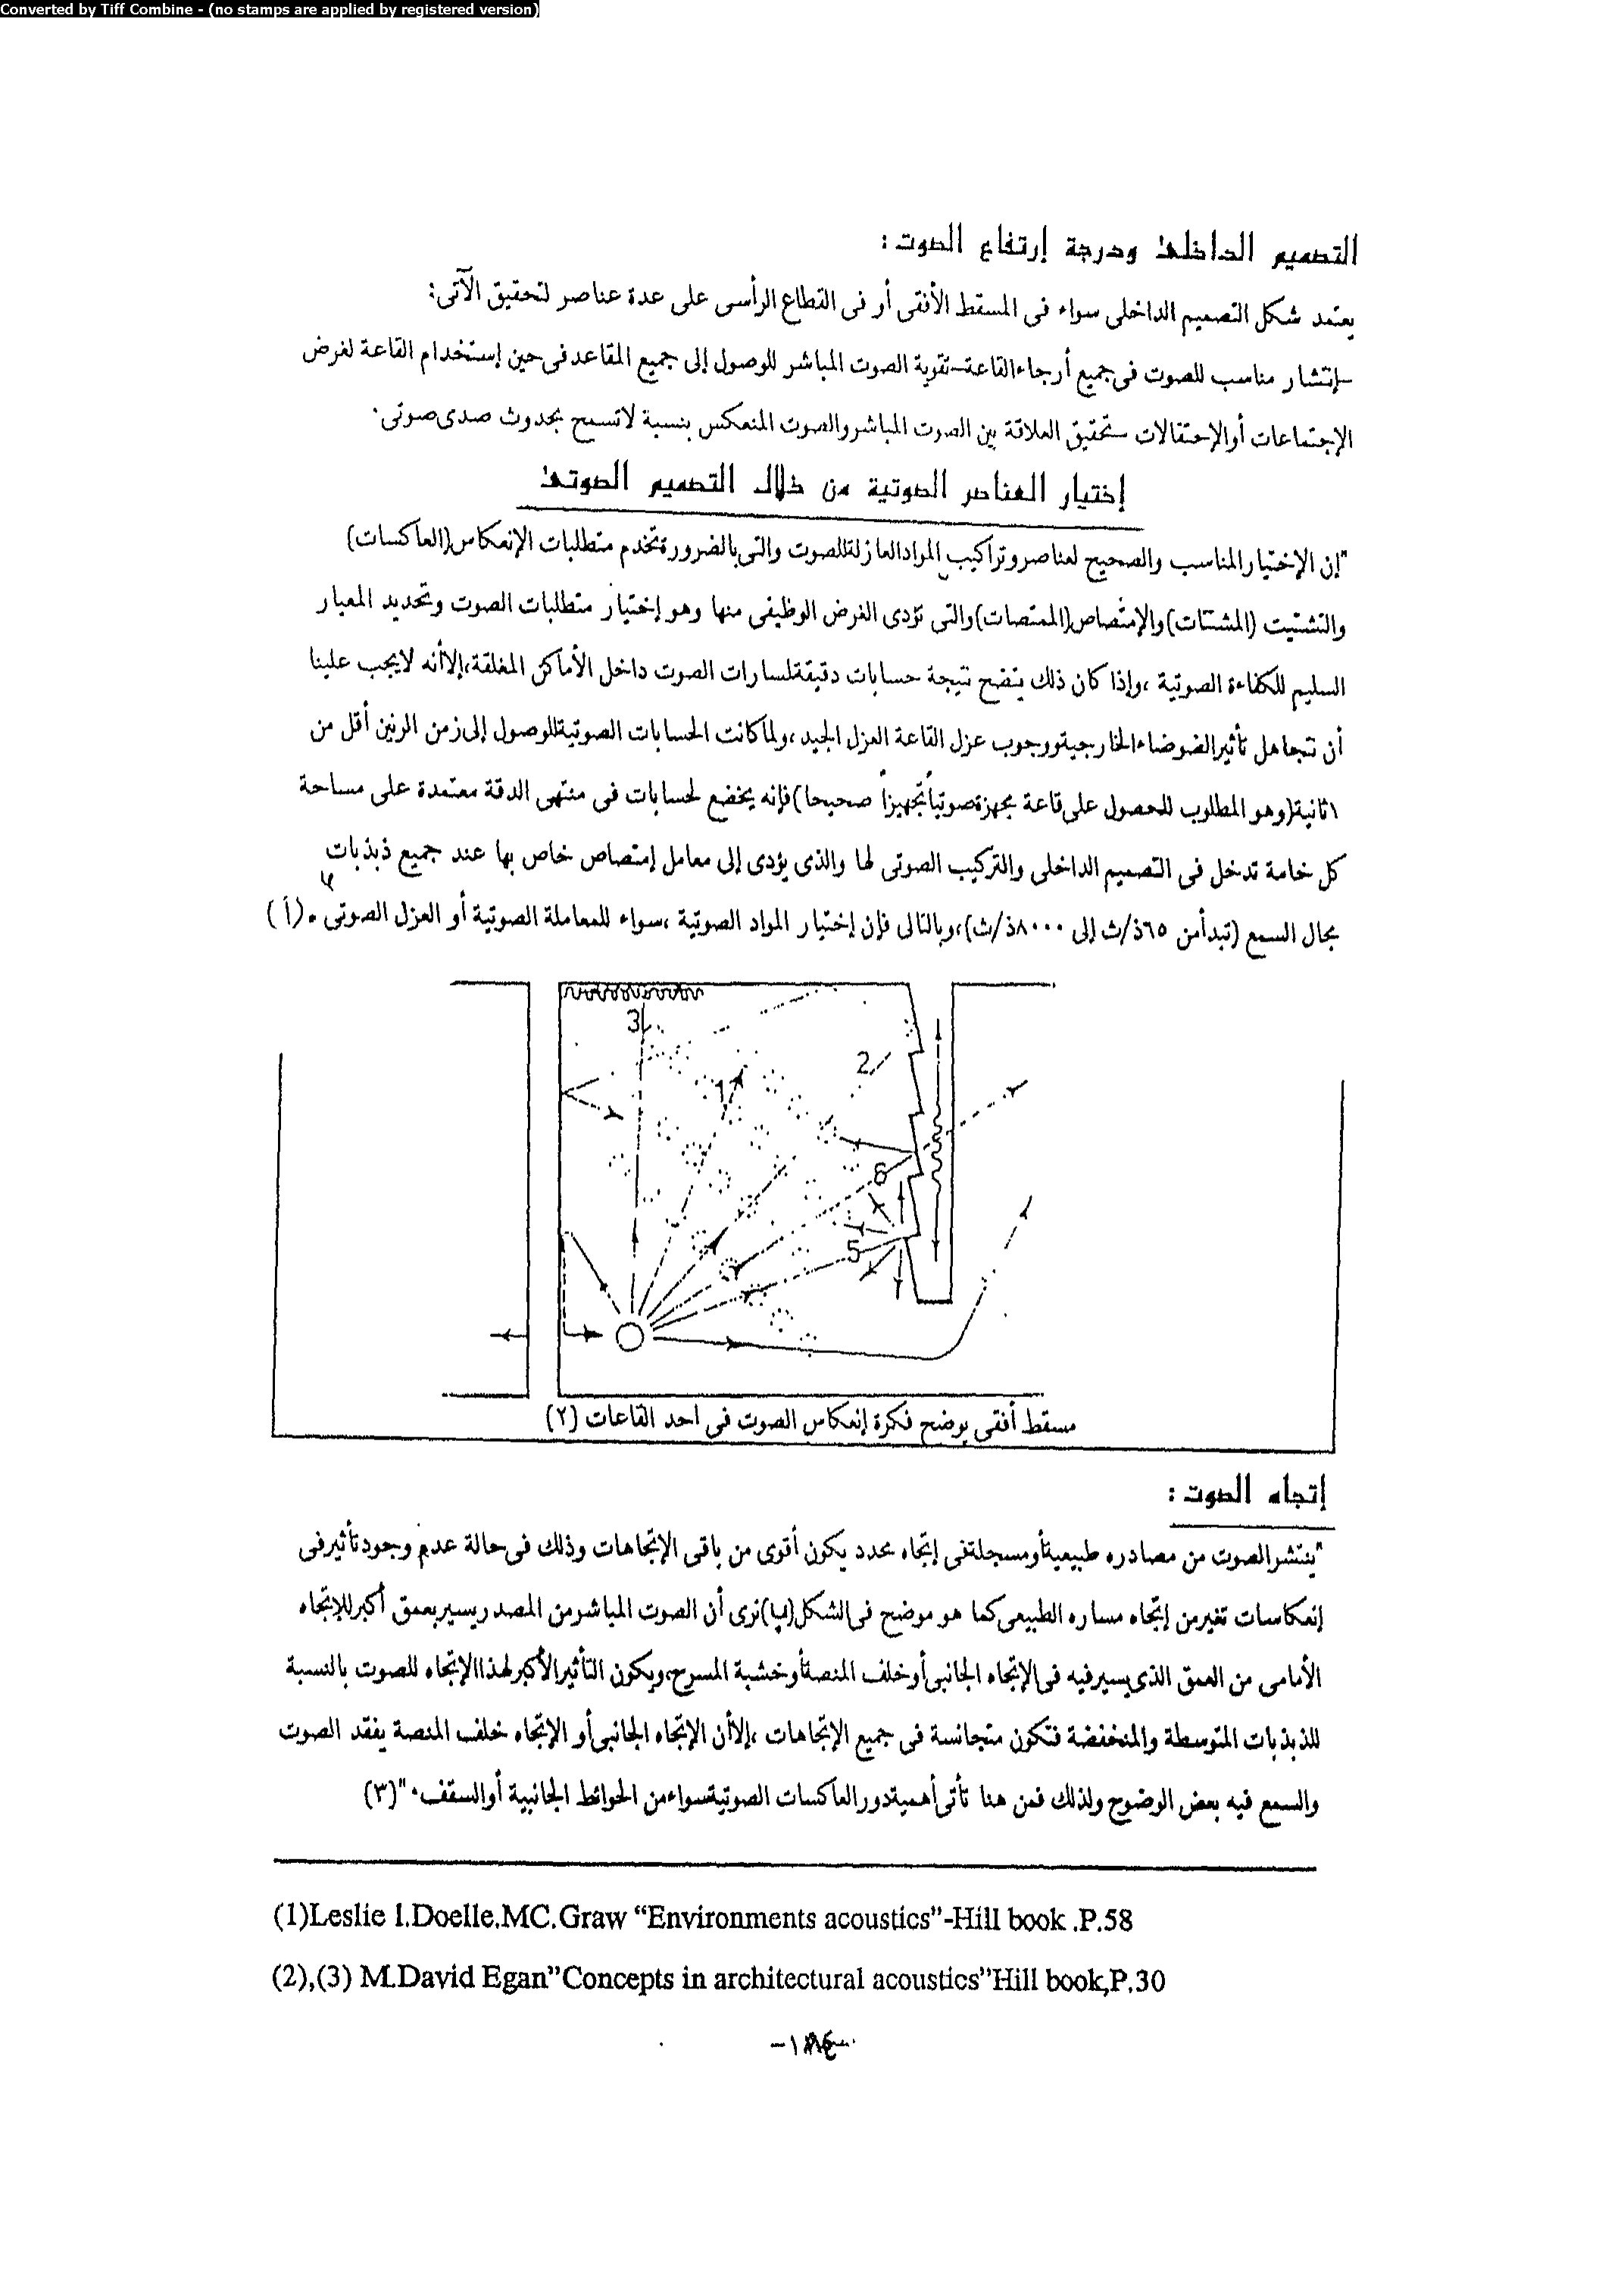 Converted by Tiff Combine - (no stamps are applied by registered version)
التصميم الداخلى ودرجة إرتفاع الصوت :
يعتمد شكل التصميم الداخلى سواء فى المسقط الأفقى أو فى القطاع الرأسى على عدة عناصر لتحقيق الآتى:
-إنتشار مناسب للصوت فى جميع أرجاء القاعة-تقوية الصوت المباشر للوصول إلى جميع المقاعد فى حين إستخدام القاعة لغرض
الإجتماعات أوالإحتفالات -تحقيق العلاقة بين الصوت المباشر والصوت المنعكس بنسبة لاتسمح بحدوث صدى صوتى.
إختيار العناصر الصوتية من خلال التصميم الصوتى
"إن الإختيار المناسب والصحيح لعناصر وتراكيب المواد العازلة للصوت والتى بالضرورة تخدم متطلبات الإنعكاس(العاكسات)
والتشتيت (المشتتات)والإمتصاص(الممتصات)والتى تؤدى الغرض الوظيفى منها وهو إختيار متطلبات الصوت وتحديد المعيار
السليم للكفاءة الصوتية ،وإذا كان ذلك يتضح نتيجة حسابات دقيقة لمسارات الصوت داخل الأماكن المغلقة،إلاأنه لايجب علينا
أن نتجاهل تأثير الضوضاء الخارجية ووجوب عزل القاعة العزل الجيد ،ولما كانت الحسابات الصوتية للوصول إلى زمن الرنين أقل من
١ثانية(وهو المطلوب للحصول على قاعة مجهزة صوتياً تجهيزاً صحيحا)فإنه يخضع لحسابات فى منتهى الدقة معتمدة على مساحة
كل خامة تدخل فى التصميم الداخلى والتركيب الصوتى لها والذى يؤدى إلى معامل إمتصاص خاص بها عند جميع ذبذبات
مجال السمع (تبدأ من ٦٥ذ/ث إلى ٨٠٠٠ذ/ث)،وبالتالى فإن إختيار المواد الصوتية ،سواء للمعاملة الصوتية أو العزل الصوتى . (١)
3
2
1
6
5
مسقط أفقى يوضح فكرة إنعكاس الصوت فى احد القاعات (٢)
إتجاه الصوت :
"ينتشر الصوت من مصادره طبيعية أو مسجلة فى إتجاه محدد يكون أقوى من باقى الإتجاهات وذلك فى حالة عدم وجود تأثير فى
إنعكاسات تغير من إتجاه مساره الطبيعى كما هو موضح فى الشكل نرى أن الصوت المباشر من المصدر يسير بعمق أكبر للإتجاه
الأمامى من العمق الذى يسير فيه فى الإتجاه الجانبى أو خلف المنصة أو خشبة المسرح،ويكون التأثير الأكبر لهذا الإتجاه للصوت بالنسبة
للذبذبات المتوسطة والمنخفضة فتكون متجانسة فى جميع الإتجاهات ،إلاأن الإتجاه الجانبى أو الإتجاه خلف المنصة يفقد الصوت
والسمع فيه بعض الوضوح ولذلك فمن هنا تأتى أهمية دور العاكسات الصوتية سواء من الحوائط الجانبية أو السقف."(٣)
(1)Leslie I.Doelle.MC.Graw “Environments acoustics”-Hill book .P.58
(2),(3) M.David Egan”Concepts in architectural acoustics”Hill book,P.30